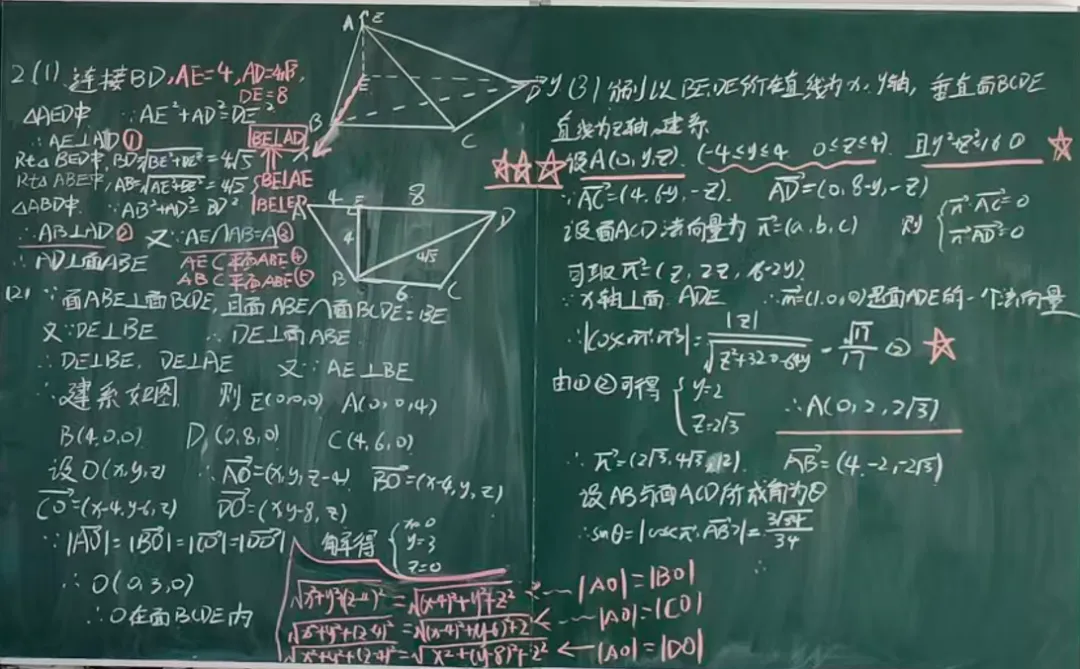 2(1) 连接BD, AE=4, AD=4√3,
DE=8
△AED中 ∵AE²+AD²=DE²
∴AE⊥AD ①
BE⊥AD
Rt△BED中, BD=√BE²+DE²=4√5
Rt△ABE中, AB=√AE²+BE²=4√2
BE⊥AE
BE⊥ED
△ABD中 ∵AB²+AD²=BD²
∴AB⊥AD ② 又∵AE∩AB=A ③
∴AD⊥面ABE
AE⊂平面ABE ④
AB⊂平面ABE ⑤
(2) ∵面ABE⊥面BCDE, 且面ABE∩面BCDE=BE
又∵DE⊥BE ∴DE⊥面ABE
∴DE⊥BE, DE⊥AE 又∵AE⊥BE
∴建系如图 则E(0,0,0) A(0,0,4)
B(4,0,0) D(0,8,0) C(4,6,0)
设O(x,y,z) ∴AO=(x,y,z-4) BO=(x-4,y,z)
CO=(x-4,y-6,z) DO=(x,y-8,z)
∵|AO|=|BO|=|CO|=|DO| 解得
x=0
y=3
z=0
∴O(0,3,0)
∴O在面BCDE内
√x²+y²+(z-4)²=√(x-4)²+y²+z² ← |AO|=|BO|
√x²+y²+(z-4)²=√(x-4)²+(y-6)²+z² ← |AO|=|CO|
√x²+y²+(z-4)²=√x²+(y-8)²+z² ← |AO|=|DO|
A
Z
E
B
C
D
y
A
4
E
8
D
4
4√5
B
6
C
(3) 分别以BE,DE所在直线为x,y轴, 垂直面BCDE
直线为z轴,建系
设A(0,y,z) (-4≤y≤4 0≤z≤4) 且y²+z²=16 ①
∴AC=(4,6-y,-z) AD=(0,8-y,-z)
设面ACD法向量为n=(a,b,c) 则
n·AC=0
n·AD=0
可取n=(z,2z,16-2y)
∵x轴⊥面ADE ∴m=(1,0,0)是面ADE的一个法向量
∴|cos<m,n>|=|z|/√z²+320-64y=√17/17 ②
由①②可得
y=2
z=2√3
∴A(0,2,2√3)
∴n=(2√3,4√3,12) AB=(4,-2,-2√3)
设AB与面ACD所成角为θ
∴sinθ=|cos<n,AB>|=3√34/34